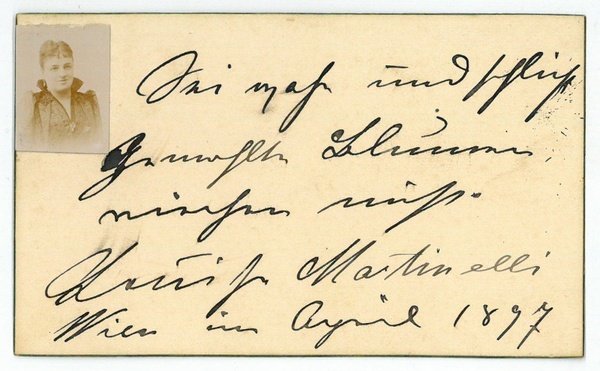 Sei wahr und schlicht
Gemahlte Blumen
riechen nicht.
Louise Martinelli
Wien im April 1897